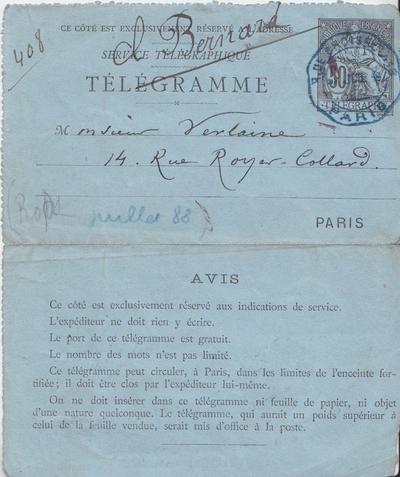 CE CÔTÉ EST EXCLUSIVEMENT RÉSERVÉ A L'ADRESSE
Bernard
408
SERVICE TÉLÉGRAPHIQUE
TÉLÉGRAMME
50
TÉLÉGRAPHE
PARIS
Monsieur Verlaine
14. Rue Royer-Collard.
juillet 88
PARIS
AVIS
Ce côté est exclusivement réservé aux indications de service.
L'expéditeur ne doit rien y écrire.
Le port de ce télégramme est gratuit.
Le nombre des mots n'est pas limité.
Ce télégramme peut circuler, à Paris, dans les limites de l'enceinte for-
tifiée; il doit être clos par l'expéditeur lui-même.
On ne doit insérer dans ce télégramme ni feuille de papier, ni objet
d'une nature quelconque. Le télégramme, qui aurait un poids supérieur à
celui de la feuille vendue, serait mis d'office à la poste.